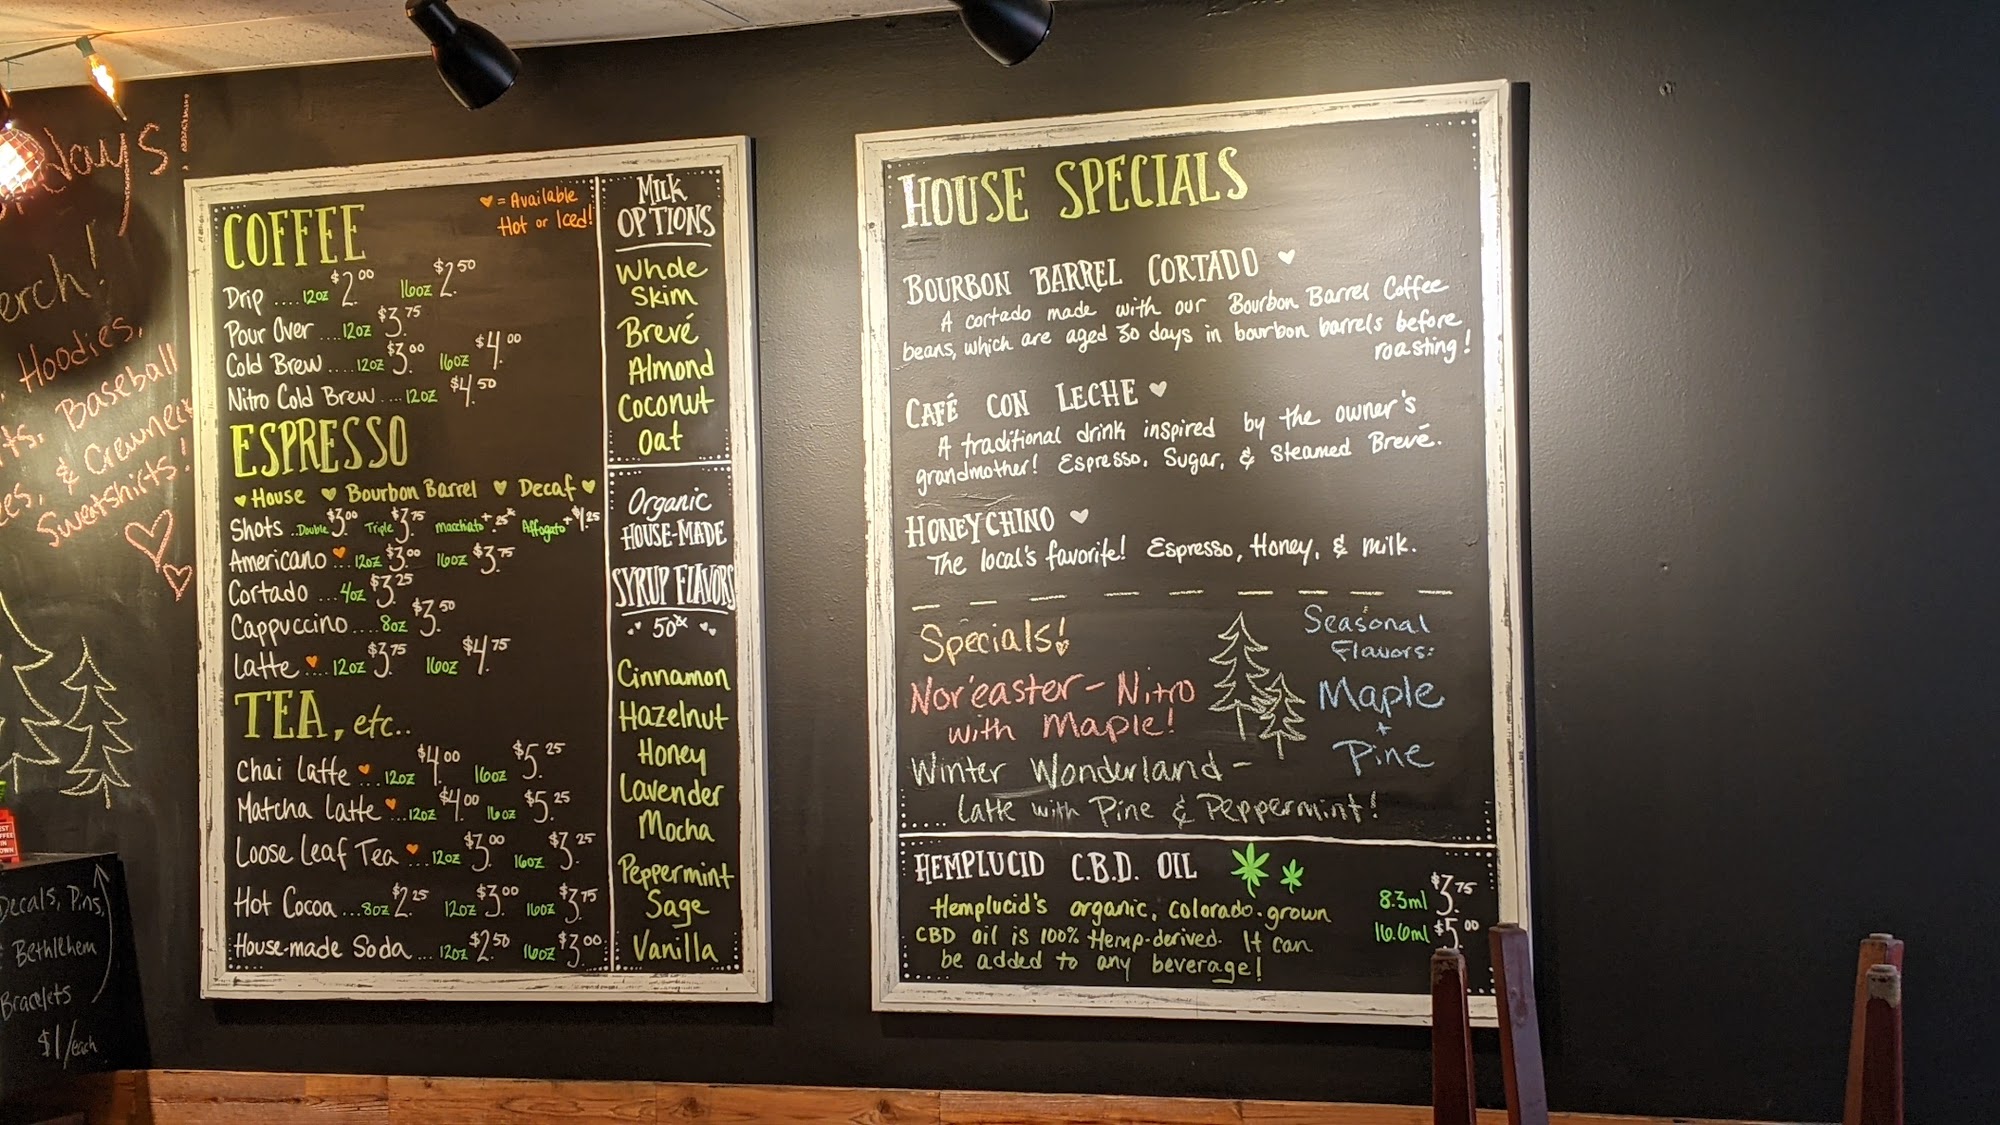 days!
Hoodies,
Baseball
& Crewneck
Sweatshirts!
Decals, Pins,
Bethlehem
Bracelets
$1/each
COFFEE
♥ = Available
Hot or Iced!
Drip ....12oz $2.00 16oz $2.50
Pour Over ...12oz $3.75
Cold Brew ....12oz $3.00 16oz $4.00
Nitro Cold Brew ....12oz $4.50
ESPRESSO
♥ House ♥ Bourbon Barrel ♥ Decaf ♥
Shots ..Double $3.00 Triple $3.75 macchiato +.25¢ Affogato +$1.25
Americano ♥ ...12oz $3.00 16oz $3.75
Cortado ...4oz $3.25
Cappuccino ....8oz $3.50
Latte ♥ ...12oz $3.75 16oz $4.75
TEA, etc..
Chai Latte ♥ ..12oz $4.00 16oz $5.25
Matcha Latte ♥ ...12oz $4.00 16oz $5.25
Loose Leaf Tea ♥ ...12oz $3.00 16oz $3.25
Hot Cocoa ...8oz $2.25 12oz $3.00 16oz $3.75
House-made Soda ...12oz $2.50 16oz $3.00
MILK
OPTIONS
Whole
Skim
Brevé
Almond
Coconut
Oat
Organic
HOUSE-MADE
SYRUP FLAVORS
50¢
Cinnamon
Hazelnut
Honey
Lavender
Mocha
Peppermint
Sage
Vanilla
HOUSE SPECIALS
BOURBON BARREL CORTADO ♥
A cortado made with our Bourbon Barrel Coffee
beans, which are aged 30 days in bourbon barrels before
roasting!
CAFÉ CON LECHE ♥
A traditional drink inspired by the owner's
grandmother! Espresso, Sugar, & Steamed Brevé.
HONEYCHINO ♥
The local's favorite! Espresso, Honey, & milk.
Specials!
Nor'easter - Nitro
with Maple!
Winter Wonderland -
Latte with Pine & Peppermint!
Seasonal
Flavors:
Maple
+
Pine
HEMPLUCID C.B.D. OIL
Hemplucid's organic, Colorado-grown
CBD oil is 100% Hemp-derived. It can
be added to any beverage!
8.3ml $3.75
16.6ml $5.00